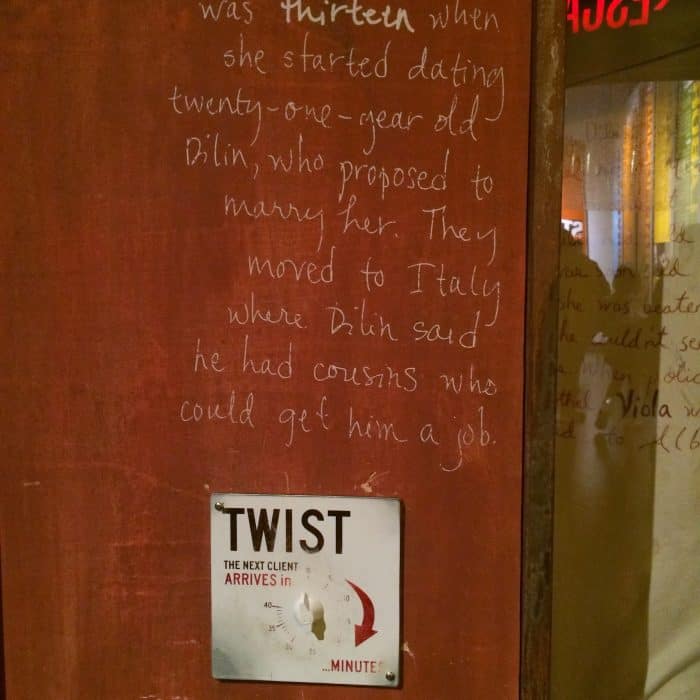 was thirteen when
she started dating
twenty-one-year old
Dilin, who proposed to
marry her. They
moved to Italy
where Dilin said
he had cousins who
could get him a job.
TWIST
THE NEXT CLIENT
ARRIVES in
40
35
...MINUTES
she was beaten
he couldn't
when
Viola
to